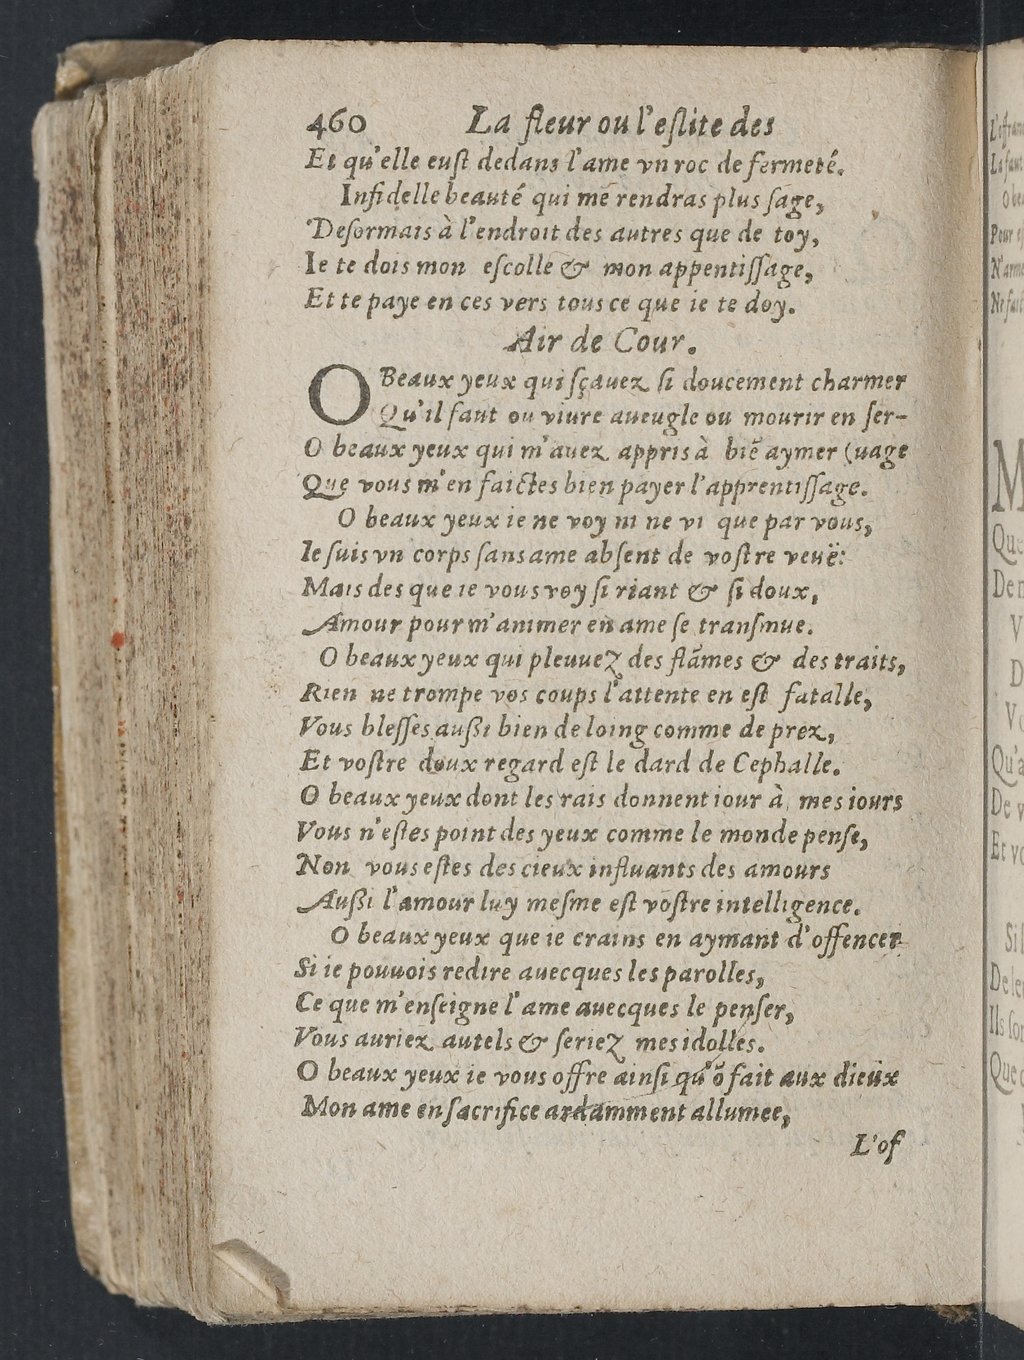 460 La fleur ou l'eſlite des
Et qu'elle euſt dedans l'ame vn roc de fermeté.
Infidelle beauté qui me rendras plus ſage,
Deſormais à l'endroit des autres que de toy,
Ie te dois mon eſcolle & mon appentiſſage,
Et te paye en ces vers tous ce que ie te doy.
Air de Cour.
O Beaux yeux qui ſçauez ſi doucement charmer
Qu'il faut ou viure aueugle ou mourir en ſer-
O beaux yeux qui m'auez appris à biẽ aymer (uage
Que vous m'en faictes bien payer l'apprentiſſage.
O beaux yeux ie ne voy ni ne vi que par vous,
Ie ſuis vn corps ſans ame abſent de voſtre veuë:
Mais des que ie vous voy ſi riant & ſi doux,
Amour pour m'animer en ame ſe tranſmue.
O beaux yeux qui pleuuez des flãmes & des traits,
Rien ne trompe vos coups l'attente en eſt fatalle,
Vous bleſſes außi bien de loing comme de prez,
Et voſtre doux regard eſt le dard de Cephalle.
O beaux yeux dont les rais donnent iour à mes iours
Vous n'eſtes point des yeux comme le monde penſe,
Non vous eſtes des cieux influants des amours
Außi l'amour luy meſme eſt voſtre intelligence.
O beaux yeux que ie crains en aymant d'offencer
Si ie pouuois redire auecques les parolles,
Ce que m'enſeigne l'ame auecques le penſer,
Vous auriez autels & ſeriez mes idolles.
O beaux yeux ie vous offre ainſi qu'õ fait aux dieux
Mon ame en ſacrifice ardamment allumee,
L'of